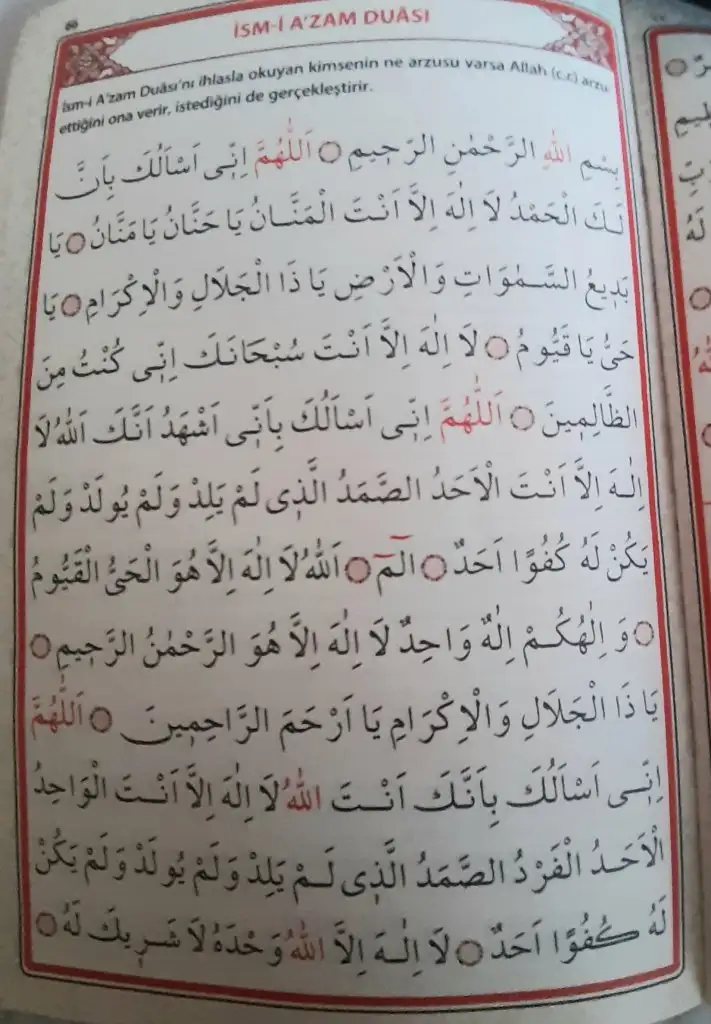 İSM-İ A'ZAM DUÂSI
İsm-i A'zam Duâsı'nı ihlasla okuyan kimsenin ne arzusu varsa Allah (c.c) arzu
ettiğini ona verir, istediğini de gerçekleştirir.
بِسْمِ اللّٰهِ الرَّحْمٰنِ الرَّح۪يمِ ۝ اَللّٰهُمَّ اِنّ۪ى اَسْاَلُكَ بِاَنَّ
لَكَ الْحَمْدُ لَا اِلٰهَ اِلَّا اَنْتَ الْمَنَّانُ يَا حَنَّانُ يَا مَنَّانُ ۝ يَا
بَد۪يعُ السَّمٰوَاتِ وَالْاَرْضِ يَا ذَا الْجَلَالِ وَالْاِكْرَامِ ۝ يَا
حَىُّ يَا قَيُّومُ ۝ لَا اِلٰهَ اِلَّا اَنْتَ سُبْحَانَكَ اِنّ۪ى كُنْتُ مِنَ
الظَّالِم۪ينَ ۝ اَللّٰهُمَّ اِنّ۪ى اَسْاَلُكَ بِاَنّ۪ى اَشْهَدُ اَنَّكَ اَللّٰهُ لَا
اِلٰهَ اِلَّا اَنْتَ الْاَحَدُ الصَّمَدُ الَّذ۪ى لَمْ يَلِدْ وَلَمْ يُولَدْ وَلَمْ
يَكُنْ لَهُ كُفُوًا اَحَدٌ ۝ الٓمٓ ۝ اَللّٰهُ لَا اِلٰهَ اِلَّا هُوَ الْحَىُّ الْقَيُّومُ
۝ وَ اِلٰهُكُمْ اِلٰهٌ وَاحِدٌ لَا اِلٰهَ اِلَّا هُوَ الرَّحْمٰنُ الرَّح۪يمِ ۝
يَا ذَا الْجَلَالِ وَالْاِكْرَامِ يَا اَرْحَمَ الرَّاحِم۪ينَ ۝ اَللّٰهُمَّ
اِنّ۪ى اَسْاَلُكَ بِاَنَّكَ اَنْتَ اللّٰهُ لَا اِلٰهَ اِلَّا اَنْتَ الْوَاحِدُ
الْاَحَدُ الْفَرْدُ الصَّمَدُ الَّذ۪ى لَمْ يَلِدْ وَلَمْ يُولَدْ وَلَمْ يَكُنْ
لَهُ كُفُوًا اَحَدٌ ۝ لَا اِلٰهَ اِلَّا اللّٰهُ وَحْدَهُ لَا شَر۪يكَ لَهُ ۝